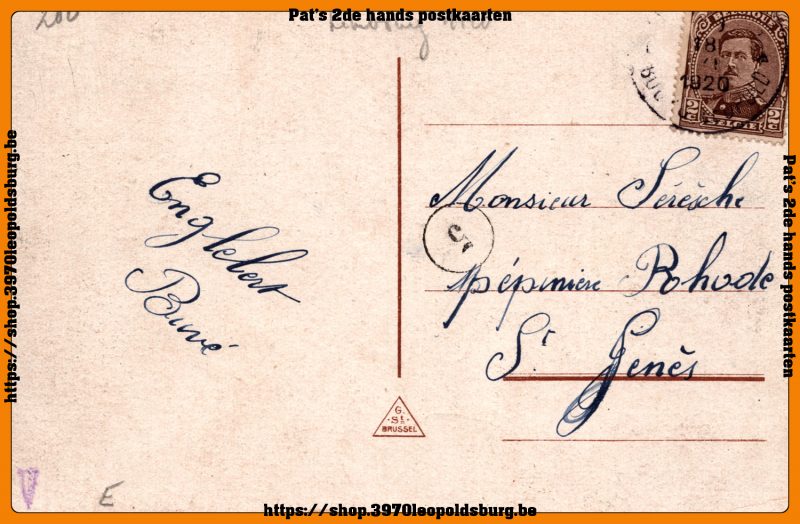 Pat's 2de hands postkaarten
200
18
1920
BELGIQUE
2 2
BELGIË
Monsieur Sérèsche
pépinière Rhode
St Genès
Englebert
Buvé
5
G.
St.
BRUSSEL
E
https://shop.3970leopoldsburg.be
Pat's 2de hands postkaarten
https://shop.3970leopoldsburg.be